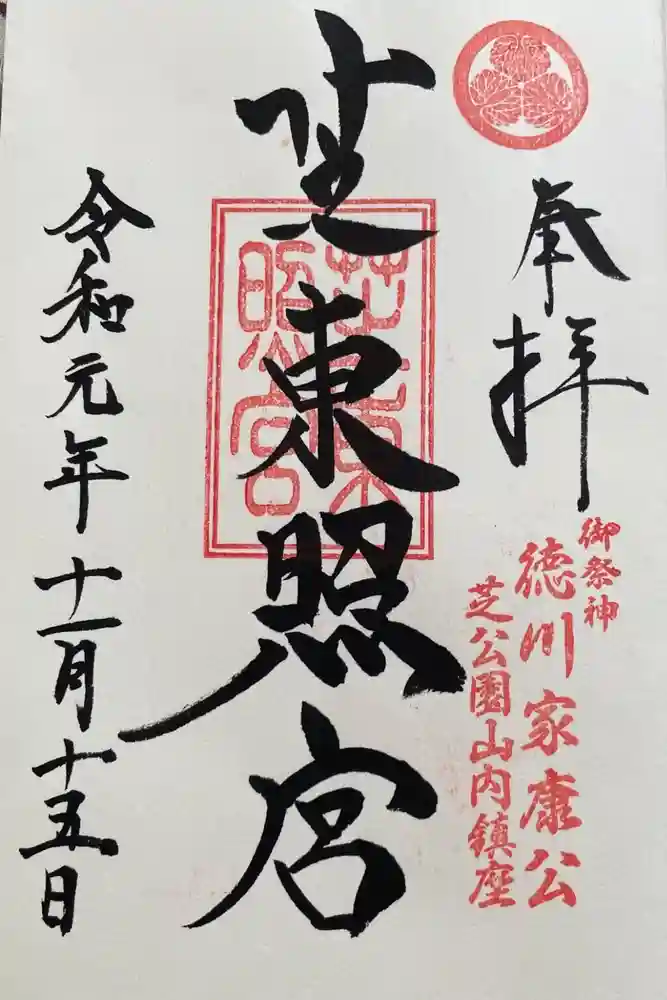 奉拝
御祭神
徳川家康公
芝公園山内鎮座
芝東照宮
芝東
照宮
令和元年十一月十五日